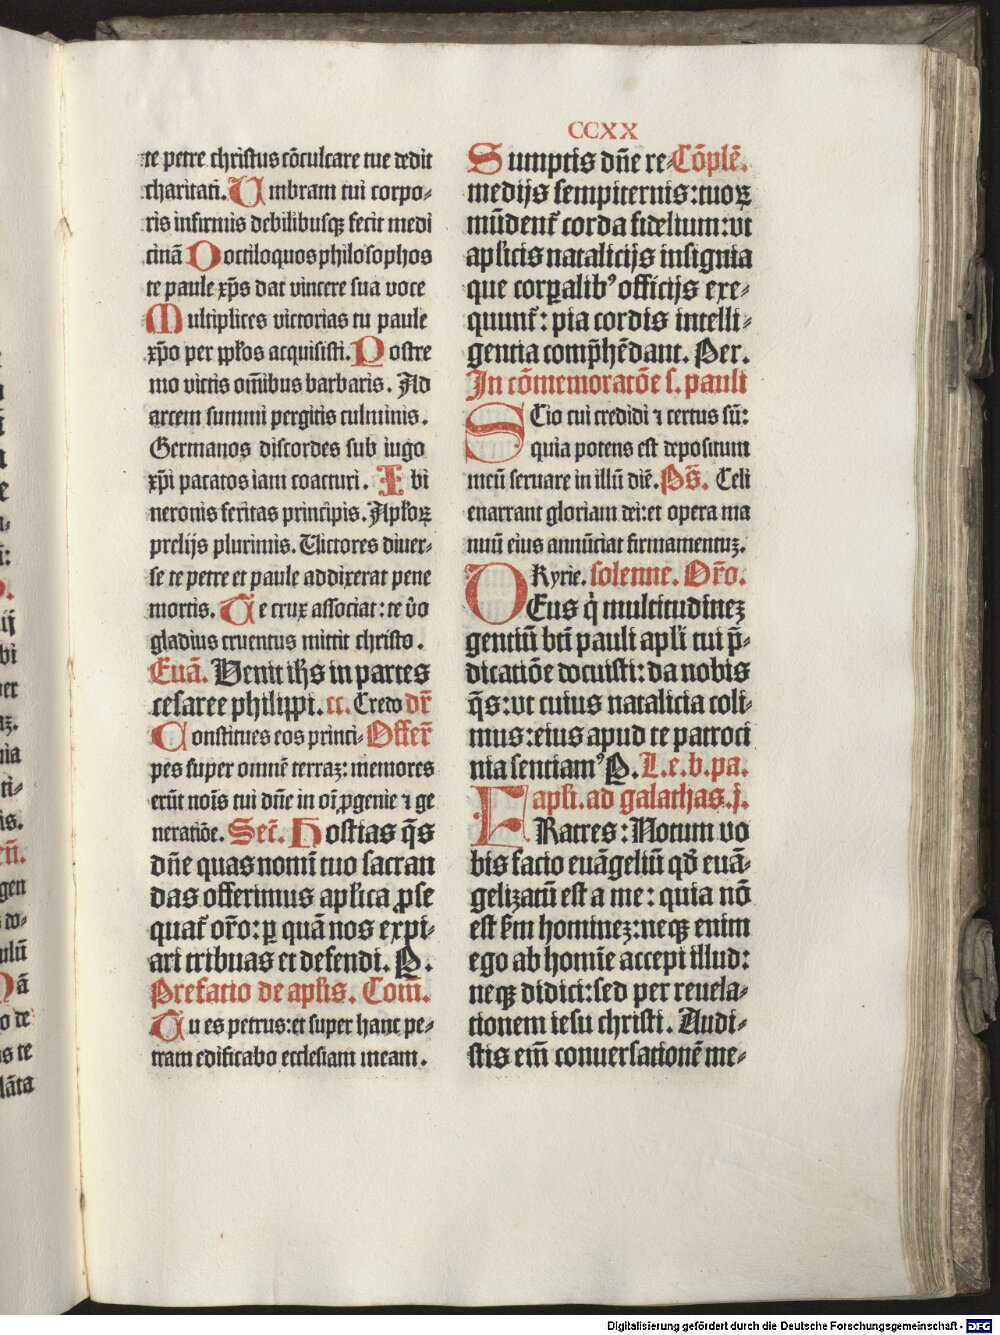 CCXX
te petre christus cōculcare tue dedit
charitati. Umbram tui corpo⸗
ris infirmis debilibusqꝫ fecit medi
cinā Doctiloquos philosophos
te paule xp̄s dat vincere sua voce
Multiplices victorias tu paule
xp̄o per pp̄łos acquisisti. Postre
mo victis om̄ibus barbaris. Ad
arcem summi pergitis culminis.
Germanos discordes sub iugo
xp̄i pacatos iam coacturi. Ibi
neronis feritas principis. Apłoꝝ
prelijs plurimis. Victores diuer⸗
se te petre et paule addixerat pene
mortis. Te crux associat: te ūo
gladius cruentus mittit christo.
Euā. Venit ih̄s in partes
cesaree philippi. cc. Credo dr̄
Constitues eos princi⸗ Offer̄
pes super omnē terraꝫ: memores
erūt noīs tui dn̄e in oī ꝓgenie ⁊ ge
neratiōe. Secͬ. Hostias q̄s
dn̄e quas nomī tuo sacran
das offerimus apłica ꝓse
quat᷑ or̄o: ꝑ quā nos expi⸗
ari tribuas et defendi. P.
Prefatio de apłis. Com̄.
Tu es petrus: et super hanc pe⸗
tram edificabo ecclesiam meam.
Sumptis dn̄e re⸗ Cōplē.
medijs sempiternis: tuoꝝ
mūdent᷑ corda fidelium: vt
apłicis natalicijs insignia
que corꝑalibꝰ officijs exe⸗
quunt᷑: pia cordis intelli⸗
gentia comp̄hēdant. Per.
In cōmemoracōe s. pauli
SCio cui credidi ⁊ certus sū:
quia potens est depositum
meū seruare in illū diē. Ps̄. Celi
enarrant gloriam dei: et opera ma
nuū eius annūciat firmamentuꝫ.
Kyrie. solenne. Or̄o.
DEus q̇ multitudineꝫ
gentiū bt̄i pauli apłi tui p̄⸗
dicatiōe docuisti: da nobis
q̄s: vt cuius natalicia coli⸗
mus: eius apud te patroci
nia sentiamꝰ P. L. e. b. pa.
apłi. ad galathas. j.
FRatres: Notum vo
bis facio euāgeliū qd̄ euā⸗
gelizatū est a me: quia nō
est ẜm homineꝫ: neqꝫ enim
ego ab homīe accepi illud:
neqꝫ didici: sed per reuela⸗
tionem iesu christi. Audi⸗
stis eīm conuersationē me⸗
Digitalisierung gefördert durch die Deutsche Forschungsgemeinschaft - DFG